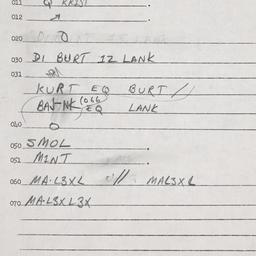 011 Q KRIST
012
020
030 DI BURT 12 LANK
031
KURT EQ BURT //
(BAJ-NK (066) EQ LANK
040
050 SMOL
051 MINT
060 MA·L3XL // MAL3XL
070 MA·L3XL3X